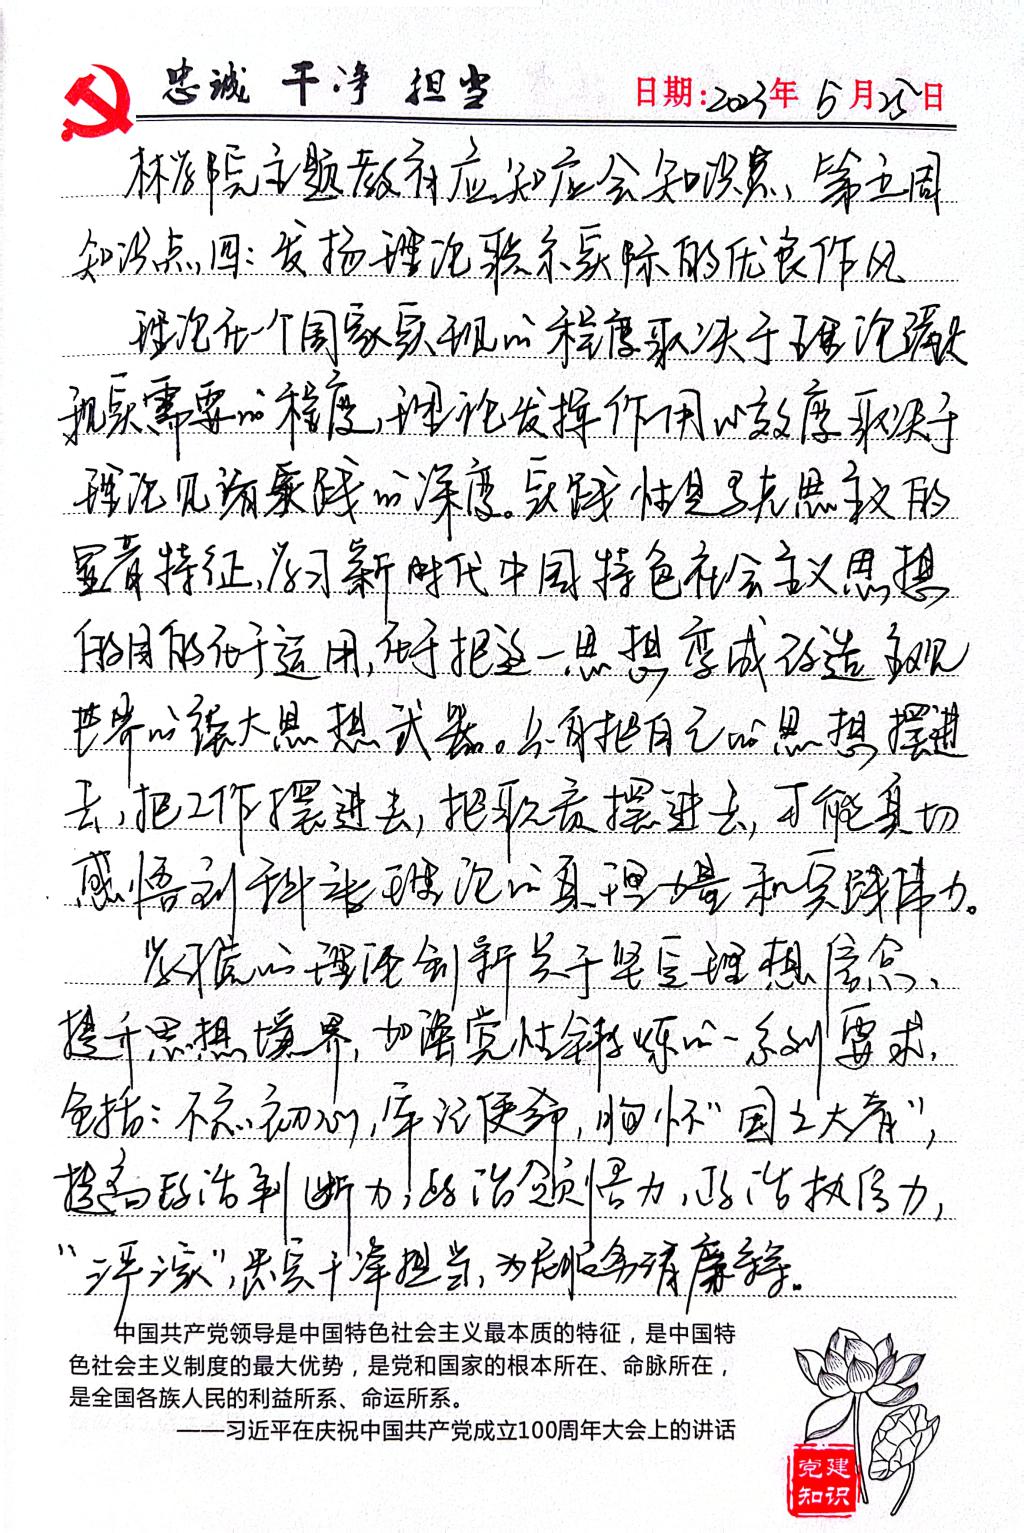 忠诚 干净 担当
日期:2023年5月25日
林学院主题教育应知应会知识点、第五周
知识点四：发扬理论联系实际的优良作风
理论在一个国家实现的程度取决于理论满足
现实需要的程度,理论发挥作用的效度取决于
理论见诸实践的深度。实践性是马克思主义的
显著特征,学习新时代中国特色社会主义思想
的目的在于运用,在于把这一思想变成改造主观
世界的强大思想武器。只有把自己的思想摆进
去,把工作摆进去,把职责摆进去,才能真切
感悟到科学理论的真理力量和实践伟力。
学习党的理论创新关于坚定理想信念、
提升思想境界,加强党性锻炼的一系列要求,
包括：不忘初心,牢记使命,胸怀"国之大者",
提高政治判断力,政治领悟力,政治执行力,
忠实干净担当,为民服务清廉
中国共产党领导是中国特色社会主义最本质的特征，是中国特
色社会主义制度的最大优势，是党和国家的根本所在、命脉所在，
是全国各族人民的利益所系、命运所系。
——习近平在庆祝中国共产党成立100周年大会上的讲话
党建
知识